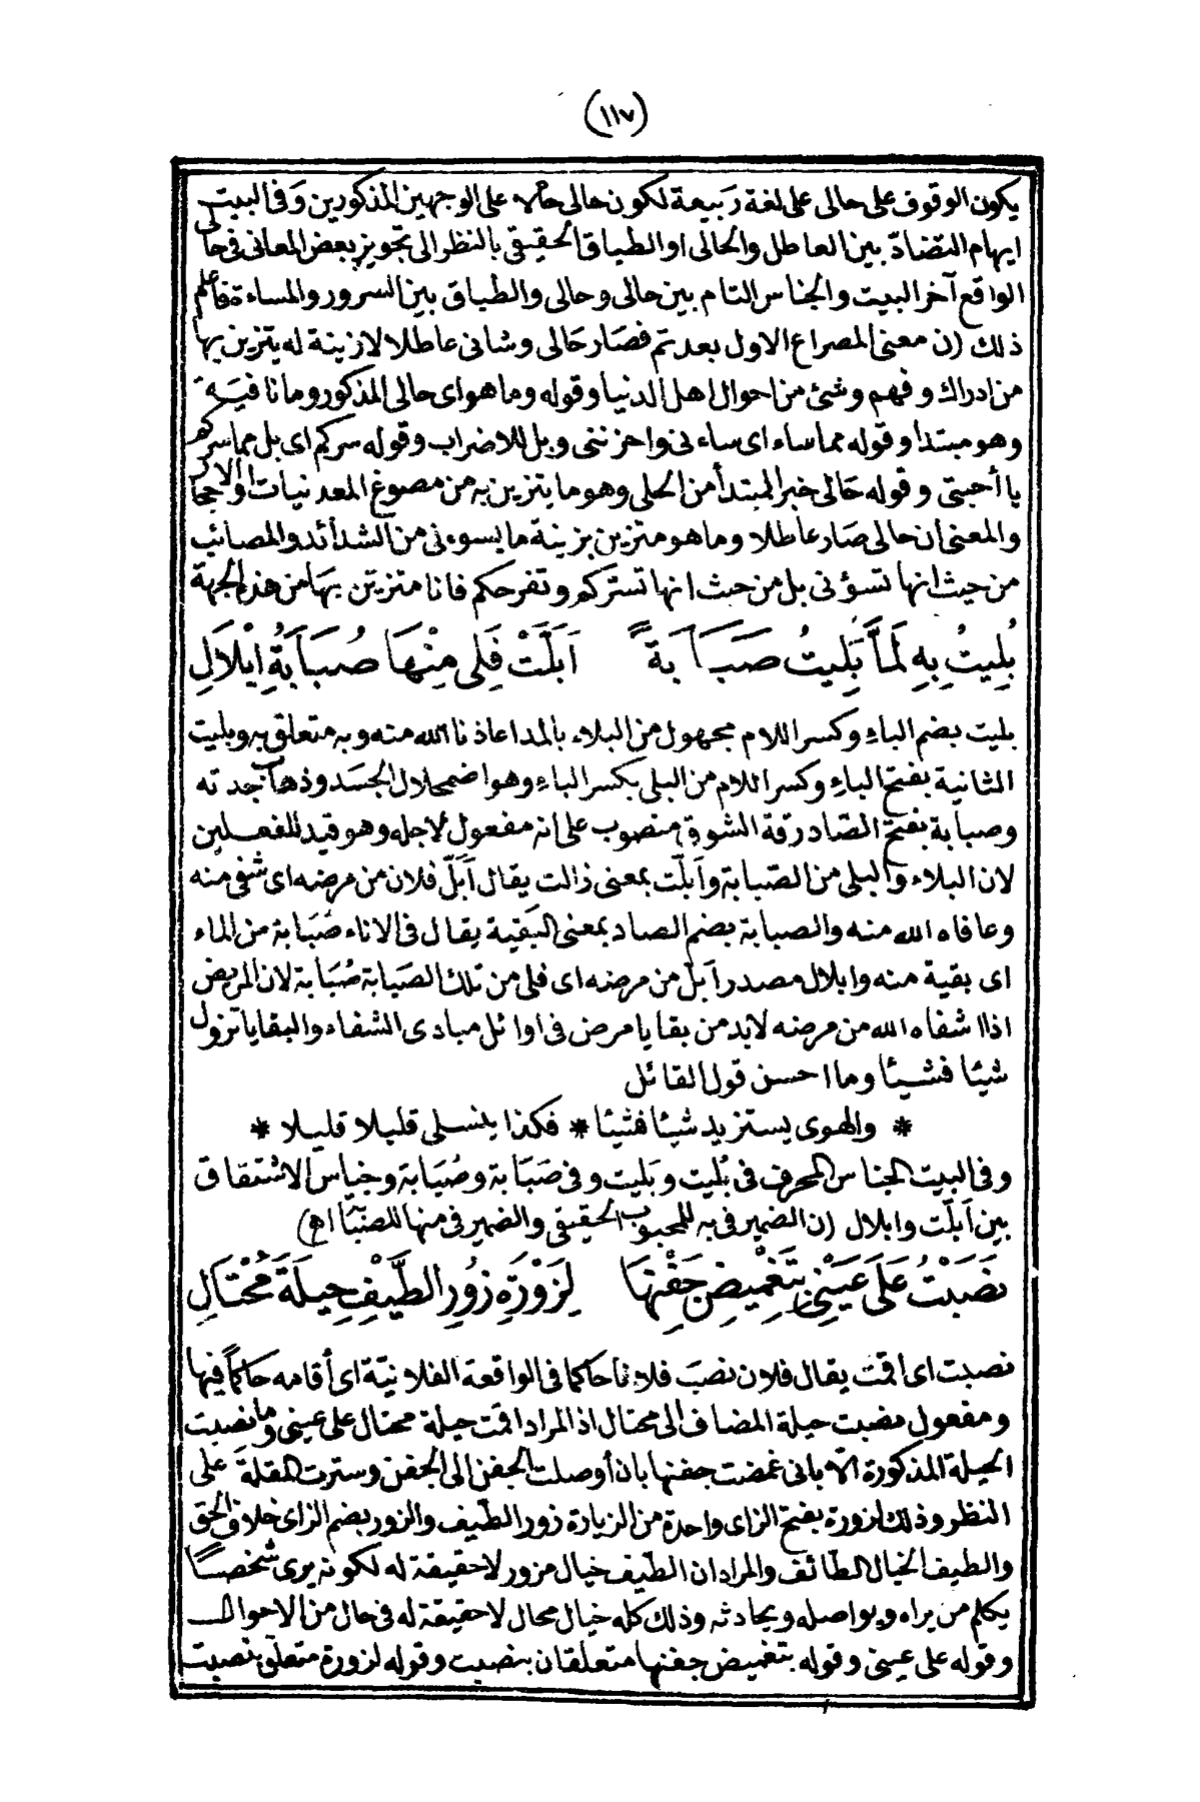 (١١٧)
يكون الوقوف على حالى على لغة ربيعة لكون حالى حالا على الوجهين المذكورين وفى البيت
ايهام التضاد بين العاطل والحالى او الطباق الحقيقى بالنظر الى تجويز بعض المعانى فى حالى
الواقع آخر البيت والجناس التام بين حالى وحالى والطباق بين السرور والمساءة فاعلم
ذلك (ن معنى المصراع الاول بعد تم فصار حالى وشانى عاطلا لا زينة له يتزين بها
من ادراك وفهم وشئ من احوال اهل الدنيا وقوله وما هو اى حالى المذكور وما نافية
وهو مبتدا وقوله مما ساء اى ساءنى واحزننى وبل للاضراب وقوله سركم اى بل مما سركم
يا أحبتى وقوله حالى خبر المبتدأ من الحلى وهو ما يتزين به من مصوغ المعدنيات او الاحجار
والمعنى ان حالى صار عاطلا وما هو متزين بزينة ما يسوءنى من الشدائد والمصائب
من حيث انها تسؤنى بل من حيث انها تستركم وتفرحكم فانا متزين بها من هذه الجهة
بُلِيتُ بِهِ لَمَّا بَلِيتُ صَبَابَةً أَبَلَّتْ فَلِى مِنْهَا صُبَابَةُ إِبْلَالِ
بليت بضم الباء وكسر اللام مجهول من البلاء بالمد اعاذنا الله منه وبه متعلق به وبليت
الثانية بفتح الباء وكسر اللام من البلى بكسر الباء وهو اضمحلال الجسد وذهاب جدته
وصبابة بفتح الصاد رقة الشوق منصوب على انه مفعول لاجله وهو قيد للفعلين
لان البلاء والبلى من الصبابة وأبلّت بمعنى زالت يقال أبلّ فلان من مرضه اى شفى منه
وعافاه الله منه والصبابة بضم الصاد بمعنى البقية يقال فى الاناء صُبَابة من الماء
اى بقية منه وابلال مصدر أبلّ من مرضه اى فلى من تلك الصَبابة صُبَابة لان المريض
اذا شفاه الله من مرضه لابد من بقايا مرض فى اوائل مبادى الشفاء والبقايا تزول
شيئا فشيئا وما احسن قول القائل
* والهوى يستزيد شيئا فشيئا * فكذا ينسلى قليلا قليلا *
وفى البيت الجناس المحرف فى بُليت وبَليت وفى صَبابة وصُبابة وجناس الاشتقاق
بين أبلّت وابلال (ن الضمير فى به للمحبوب الحقيقى والضمير فى منها للصبابة اهـ)
نَصَبْتُ عَلَى عَيْنِى بِتَغْمِيضِ جَفْنِهَا لِزَوْرَةِ زُورِ الطَّيْفِ حِيلَةَ مُحْتَالِ
نصبت اى اقمت يقال فلان نصب فلانا حاكما فى الواقعة الفلانية اى أقامه حاكما فيها
ومفعول نصبت حيلة المضاف الى محتال اذ المراد اقمت حيلة محتال على عينى وما نصبت
الحيلة المذكورة الا بانى غمضت جفنها بان أوصلت الجفن الى الجفن وسترت المقلة على
النظر وذلك لزورة بفتح الزاى واحدة من الزيارة زور الطيف والزور بضم الزاى خلاف الحق
والطيف الخيال الطائف والمراد ان الطيف خيال مزور لا حقيقة له لكونه يرى شخصا
يكلم من يراه ويواصله ويحادثه وذلك كله خيال محال لا حقيقة له فى حال من الاحوال
وقوله على عينى وقوله بتغميض جفنها متعلقان بنصبت وقوله لزورة متعلق بنصبت